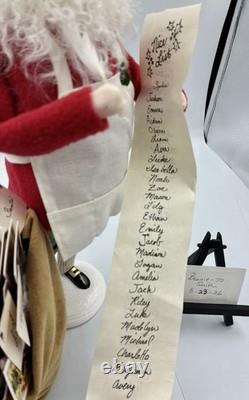 Nice
List
Jackson
Emma
Aiden
Olivia
Liam
Ava
Luke
Isabella
Noah
Zoe
Mason
Lily
Ethan
Emily
Jacob
Madison
Logan
Amelia
Jack
Riley
Luke
Madelyn
Michael
Charlotte
Avery
ebay